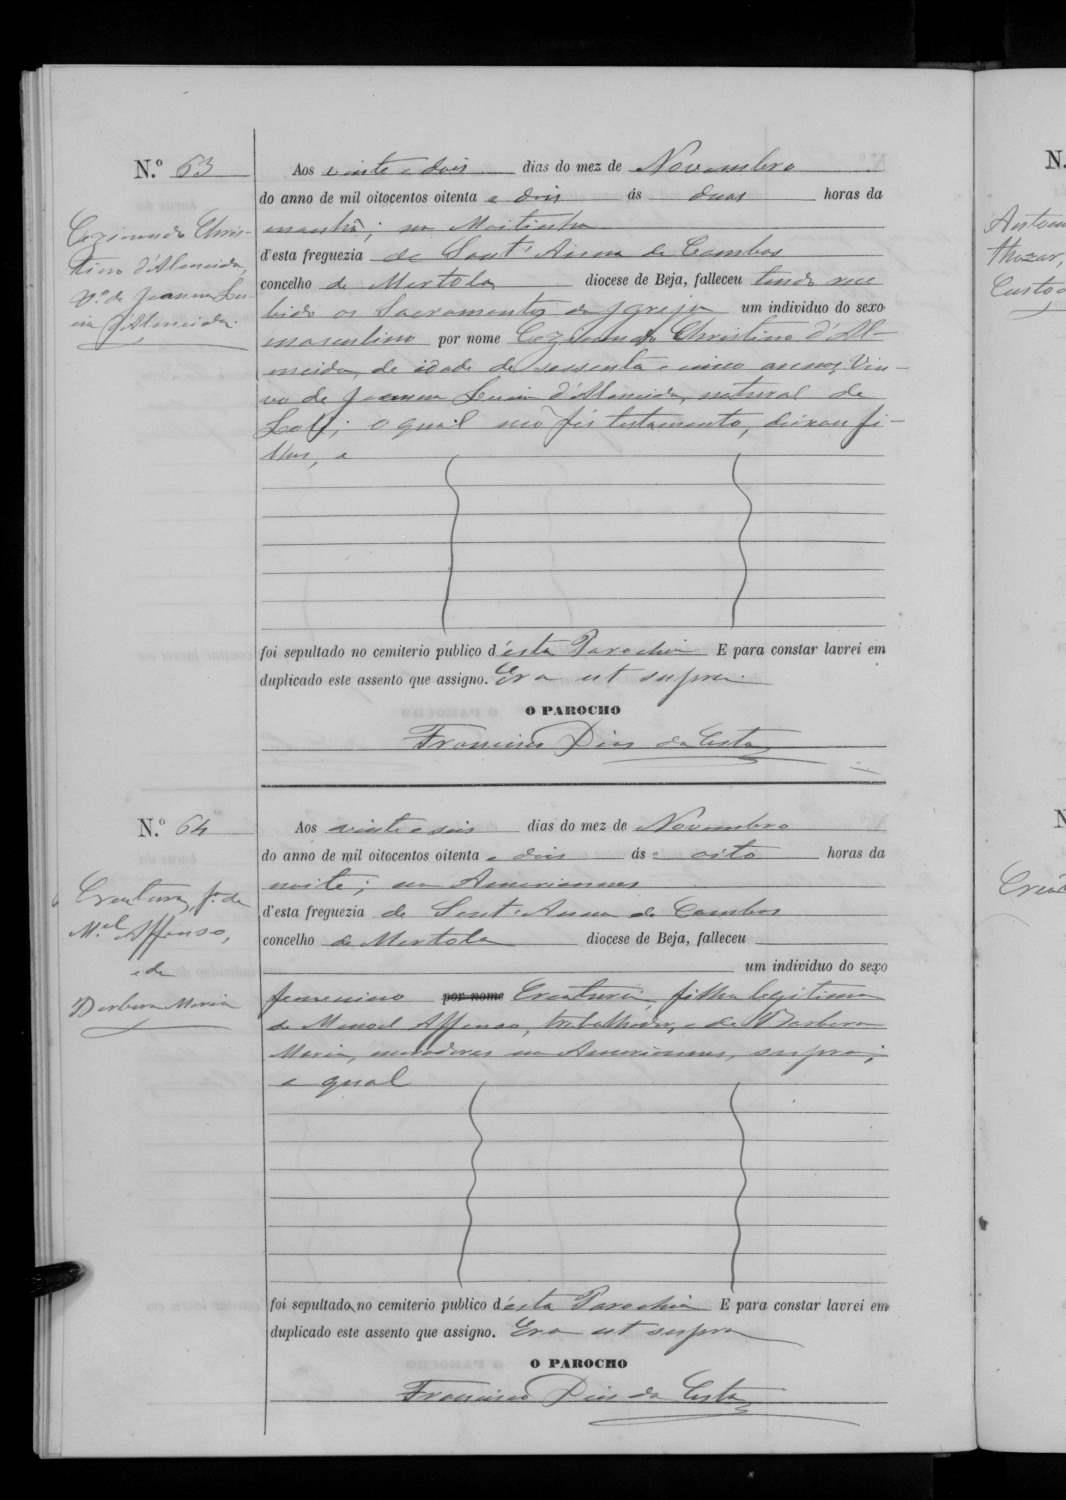 N.º 63
Cezinando Chris-
tino d'Almeida,
V.º de Joanna Lu-
cia d'Almeida.
Aos vinte e dois dias do mez de Novembro
do anno de mil oitocentos oitenta e dois ás duas horas da
manhã; na
d'esta freguezia de Sant'Anna de Cambas
concelho de Mertola diocese de Beja, falleceu tendo rece
bido os Sacramentos da Igreja um individuo do sexo
masculino por nome Cezinando Christino d'Al-
meida, de idade de sessenta e cinco annos, Viu-
vo de Joanna Lucia d'Almeida, natural de
o qual não fès testamento, deixou fi-
lhos, e
foi sepultado no cemiterio publico d'ésta Parochia E para constar lavrei em
duplicado este assento que assigno. Era ut supra.
O PAROCHO
Francisco Dias da Costa
N.º 64
Creatura, f.ª de
M.el Affonso,
e de
Barbara Maria
Aos vinte e seis dias do mez de Novembro
do anno de mil oitocentos oitenta e dois ás oito horas da
noite; em
d'esta freguezia de Sant'Anna de Cambas
concelho de Mertola diocese de Beja, falleceu
um individuo do sexo
femenino por nome Creatura, filha legitima
de Manoel Affonso, trabalhador, e de Barbara
Maria, moradores supra;
a qual
foi sepultado no cemiterio publico d'ésta Parochia E para constar lavrei em
duplicado este assento que assigno. Era ut supra
O PAROCHO
Francisco Dias da Costa
N.
Thozar,
N